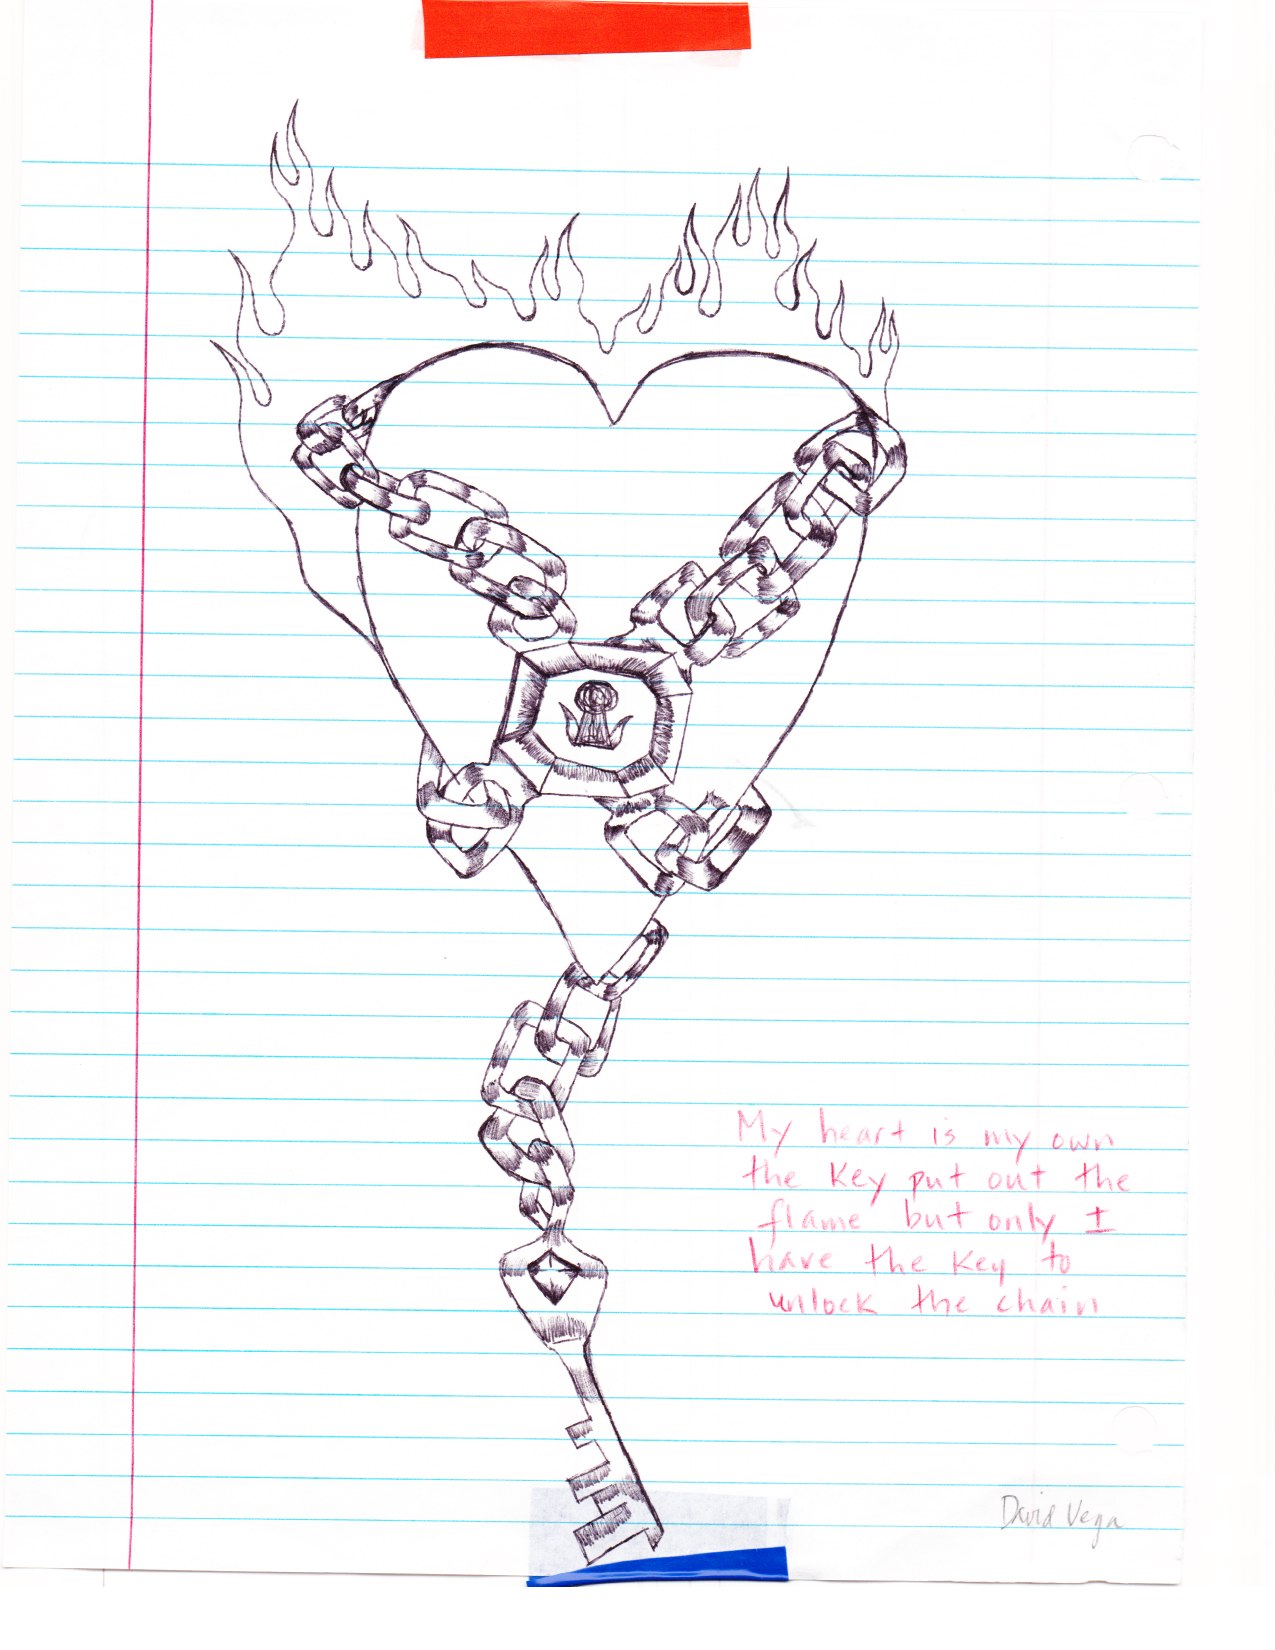 My heart is my own
the key put out the
flame but only I
have the key to
unlock the chain
David Vega